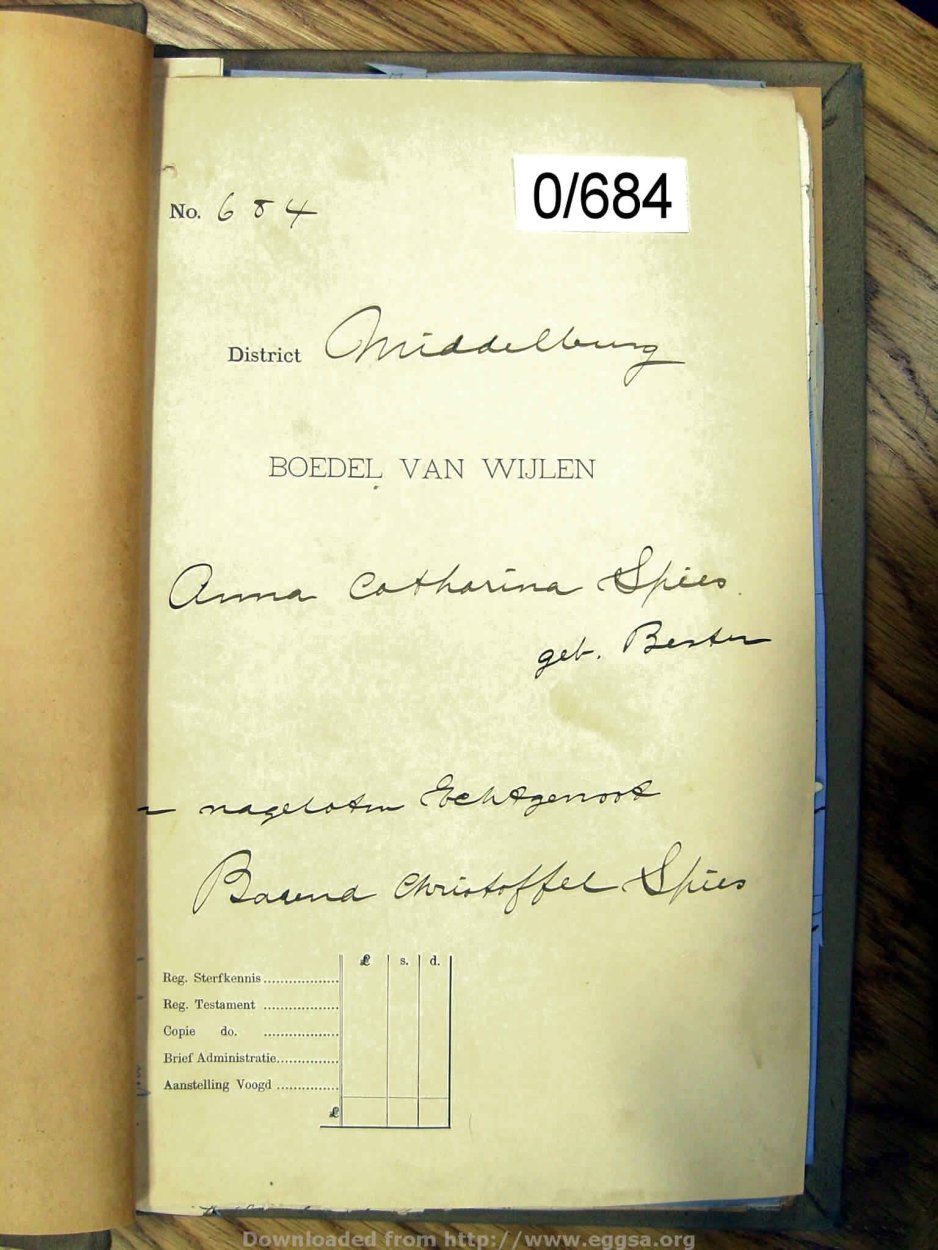 No. 684
0/684
District Middelburg
BOEDEL VAN WIJLEN
Anna Catharina Spies
geb. Bester
nagelaten Echtgenoot
Barend Christoffel Spies
£ s. d.
Reg. Sterfkennis
Reg. Testament
Copie do.
Brief Administratie
Aanstelling Voogd
£
Downloaded from http://www.eggsa.org